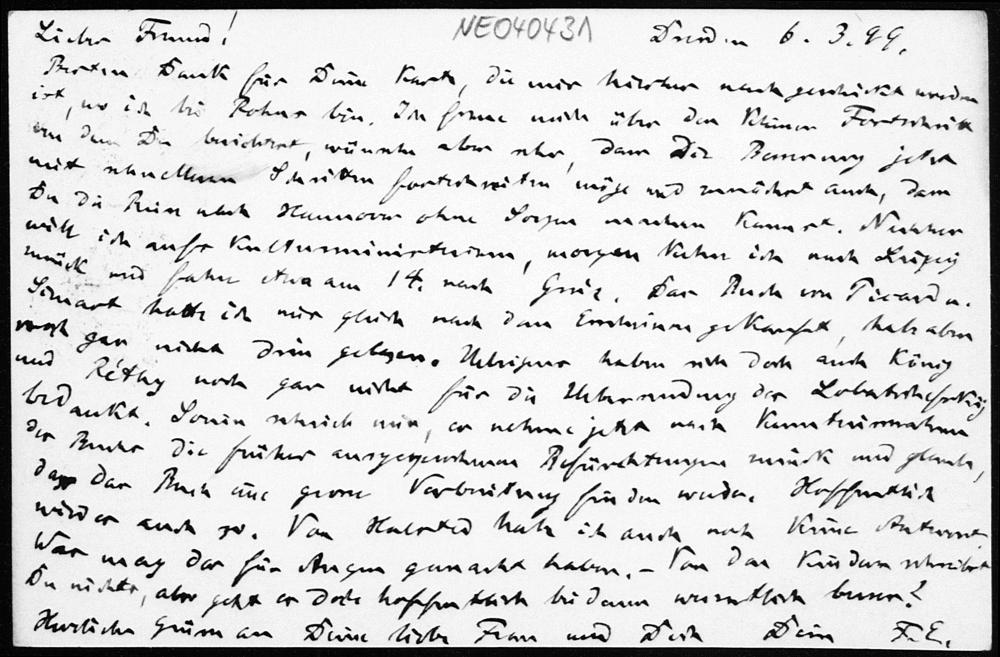 NEO40431
Lieber Freund! Dresden 6. 3. 99.
Besten Dank für Deine Karte, die mir hierher nachgeschickt worden
ist, wo ich bei Rohns bin. Ich freue mich über den kleinen Fortschritt
von dem Du berichtest, wünsche aber sehr, dass Die Besserung jetzt
mit schnelleren Schritten fortschreiten möge und zunächst auch, dass
Du die Reise nach Hannover ohne Sorgen machen kannst. Nachher
will ich aufs Kultusministerium, morgen kehre ich nach Leipzig
zurück und fahre etwa am 14. nach Greiz. Das Buch von Picard u.
Simart hatte ich mir gleich nach dem Erscheinen gekauft, habe aber
noch gar nicht drin gelesen. Uebrigens haben sich doch auch König
und Réthy noch gar nicht für die Uebersendung des Lobatschefskij
bedankt. Sonin schrieb mir, er nehme jetzt nach Kenntnissnahme
des Buches die früher ausgesprochenen Befürchtungen zurück und glaube,
dass das Buch eine grosse Verbreitung finden werde. Hoffentlich
wird es auch so. Von Halsted habe ich auch noch keine Antwort.
Was mag der für Augen gemacht haben. – Von den Kindern schreibst
Du nichts, also geht es doch hoffentlich bei denen wesentlich besser?
Herzliche Grüsse an Deine liebe Frau und Dich Dein F. E.